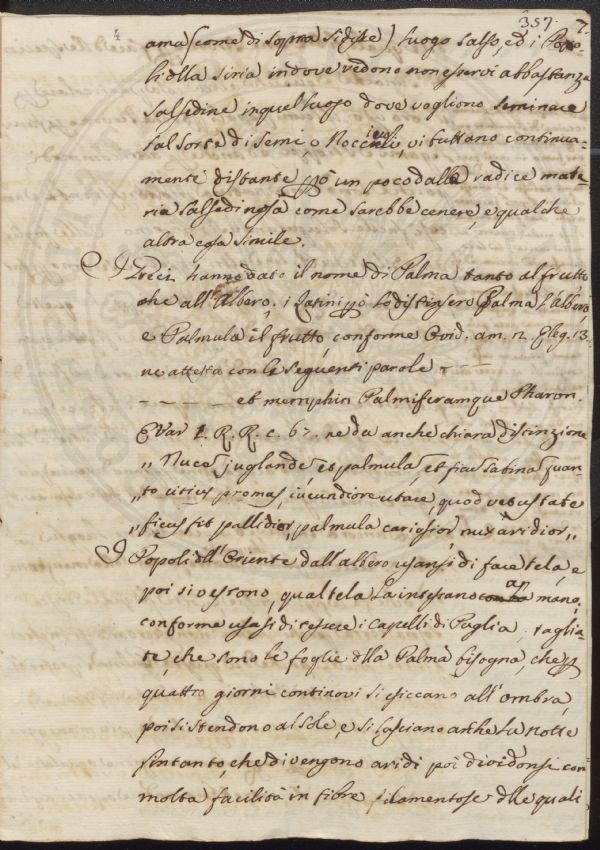 4 357. 7.
ama (come di sopra si disse) luogo salso, ed i Popo-
li dlla Siria indove vedono non esservi abbastanza
salsedine in quel luogo dove vogliono seminare
tal sorte di semi, o Noccioli, vi buttano continua-
mente distante però un poco dalla radice mate-
ria salsedinosa come sarebbe cenere, e qualche
altra cosa simile.
I Greci hanno dato il nome di Palma tanto al frutto
che all'Albero; i Latini però lo distinsero Palma l'albero
e Palmula il frutto, conforme Ovid. am. 2. Eleg. 13.
ne attesta con le seguenti parole
et memphin Palmiferamque Pharon.
E Var 1. R. R. c. 67. ne dà anche chiara distinzione
,, Nuces juglandes, et palmulas, et ficus sabinas quan-
,, to citius promas, iucundiore utare, quod vetustate
,, ficus fit pallidior, palmula cariosior, nux aridior,,
I Popoli dll'Oriente dall'albero usansi di fare tela, e
poi si vestono, qual tela la intessano a mano,
conforme usasi di tessere i Capelli di Paglia, taglia-
te, che sono le foglie dlla Palma bisogna, che p
quattro giorni continovi si essiccano all'ombra,
poi si stendono al sole, e si lasciano anche la notte
sintanto, che divengono aridi poi dividonsi con
molta facilità in fibre filamentose dlle quali